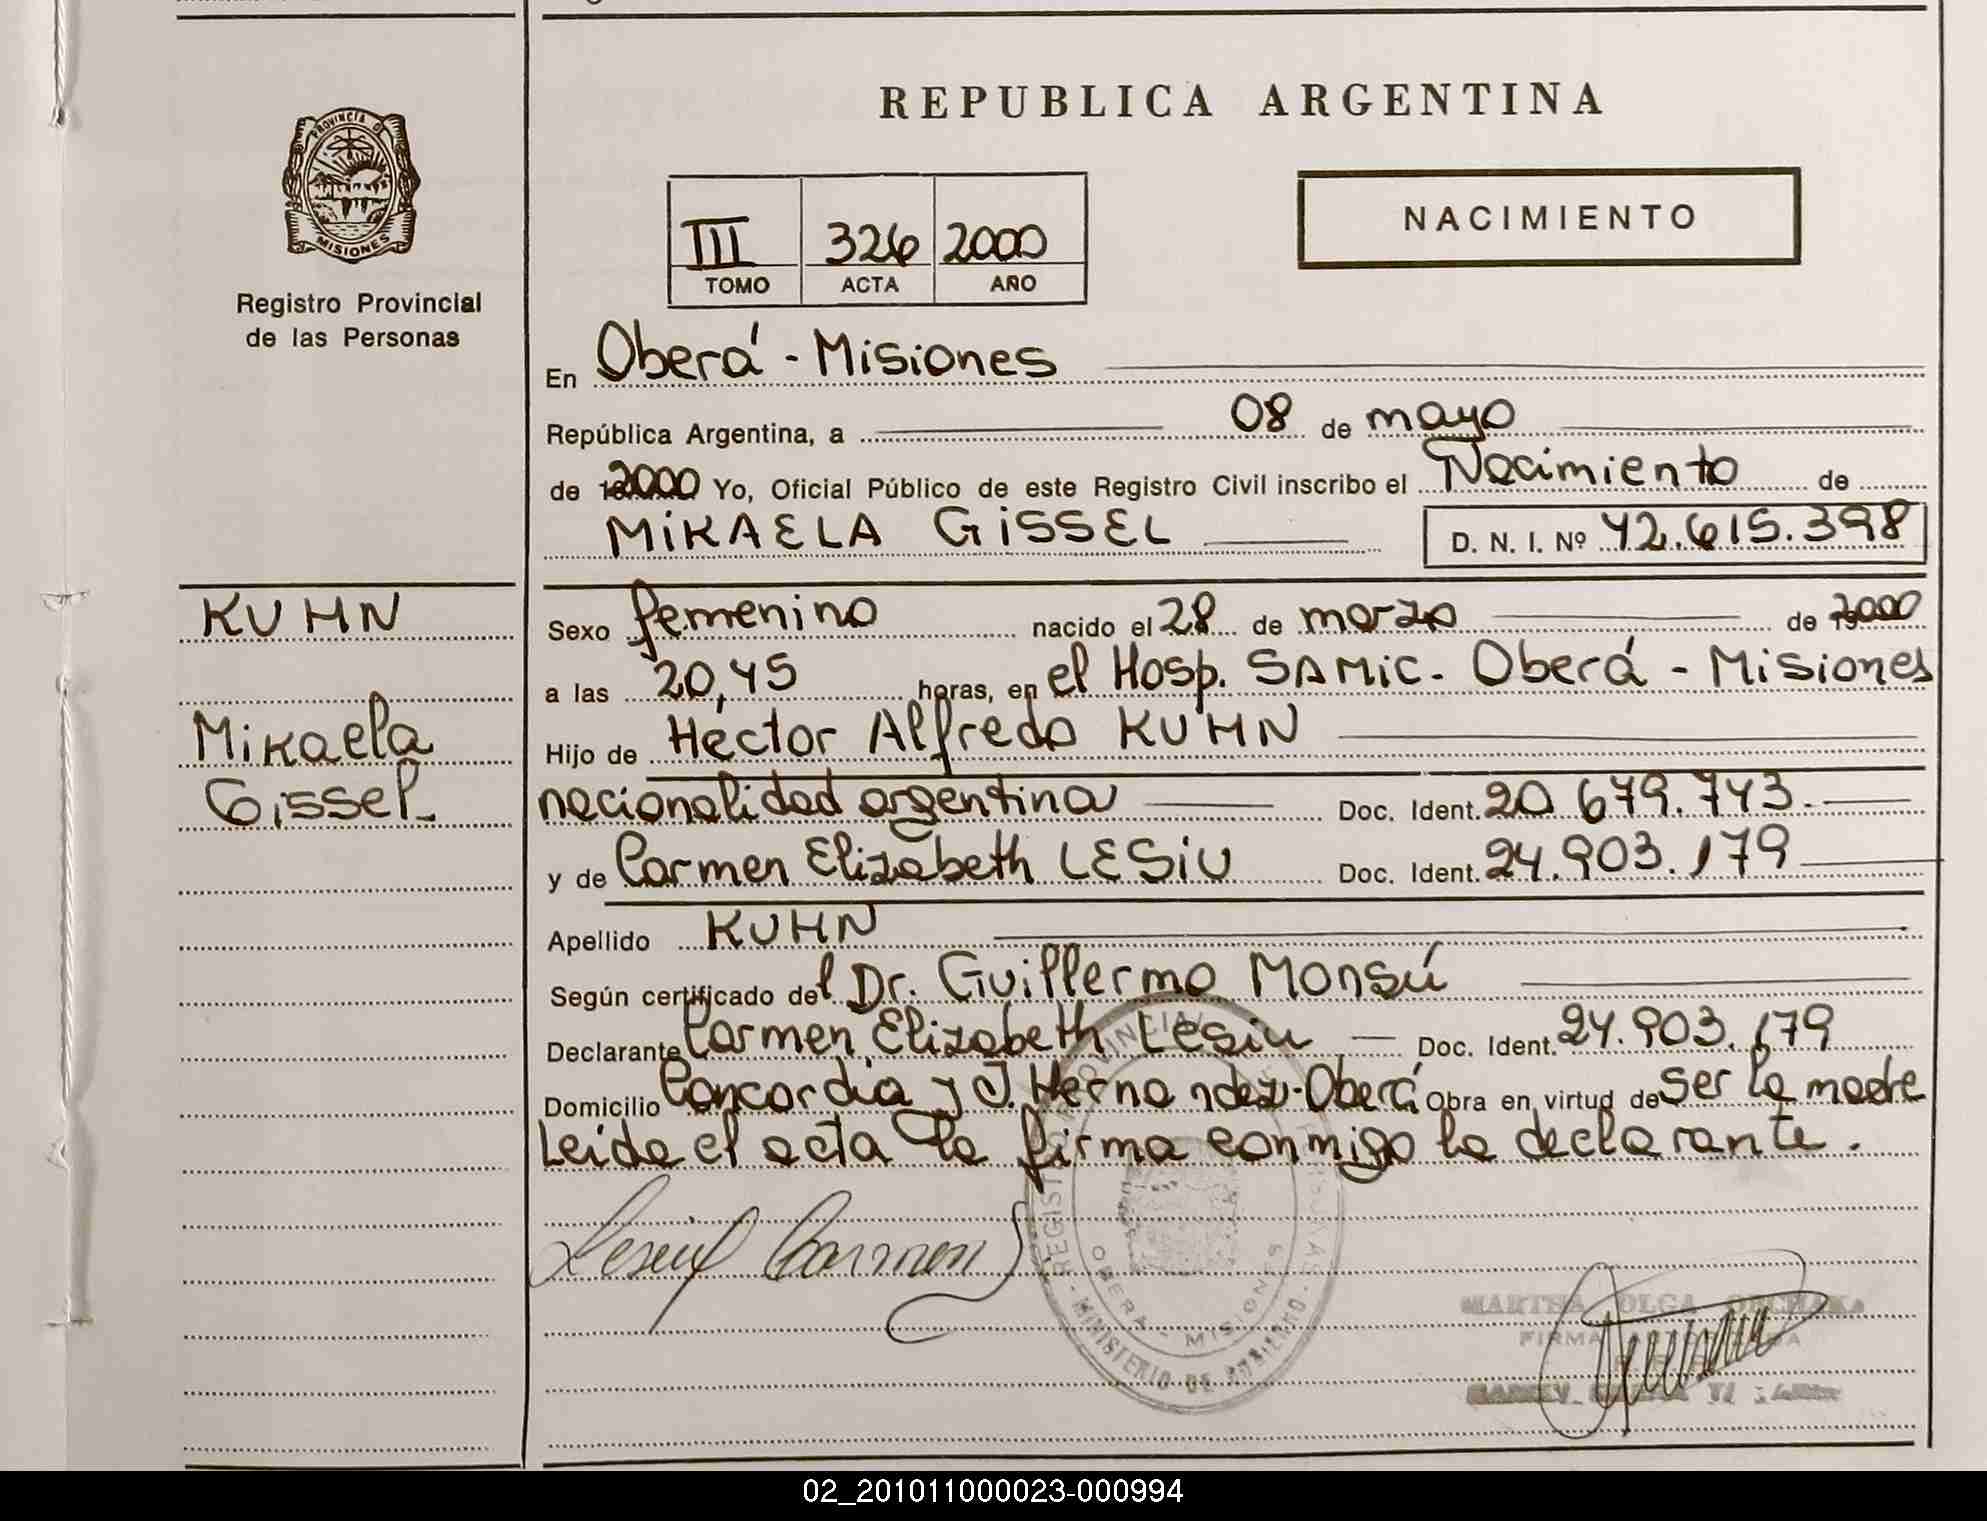 REPUBLICA ARGENTINA
PROVINCIA DE
MISIONES
Registro Provincial
de las Personas
NACIMIENTO
III 326 2000
TOMO ACTA AÑO
En Oberá - Misiones
República Argentina, a 08 de mayo
de 2000 Yo, Oficial Público de este Registro Civil inscribo el Nacimiento de
MIKAELA GISSEL D. N. I. Nº 42.615.398
KUHN
Mikaela
Gissel
Sexo femenino nacido el 28 de marzo de 2000
a las 20,45 horas, en el Hosp. SAMIC. Oberá - Misiones
Hijo de Héctor Alfredo KUHN
nacionalidad argentina Doc. Ident. 20.679.743.
y de Carmen Elizabeth LESIU Doc. Ident. 24.903.179
Apellido KUHN
Según certificado del Dr. Guillermo Monsú
Declarante Carmen Elizabeth Lesiu Doc. Ident. 24.903.179
Domicilio Concordia y J. Hernandez - Oberá Obra en virtud de ser la madre
Leida el acta la firma conmigo la declarante.
Carmen
REGISTRO PROVINCIAL DE LAS PERSONAS
OBERA - MISIONES
MINISTERIO DE GOBIERNO
MARTHA OLGA
FIRMA AUTORIZADA
02_201011000023-000994